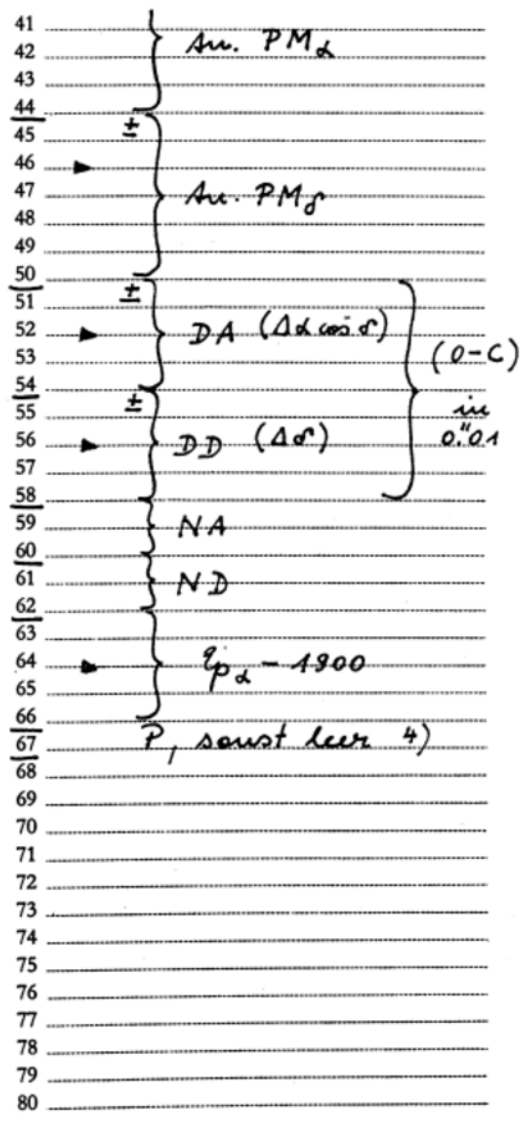 41
An. PMα
42
43
44
±
45
46
47 An. PMδ
48
49
50
±
51
52 DA (Δα cos δ)
(O-C)
53
54
±
55 in
56 DD (Δδ) 0."01
57
58
59 NA
60
61 ND
62
63
64 Epα - 1900
65
66
P, sonst leer 4)
67
68
69
70
71
72
73
74
75
76
77
78
79
80